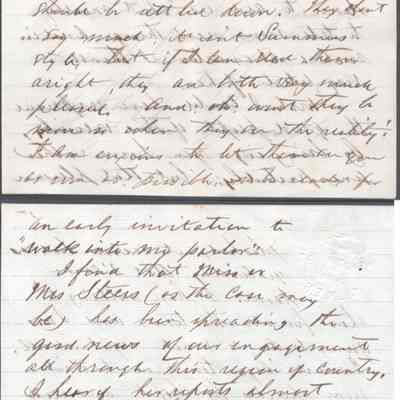 should be settled down. They don't
say much; it isn't Summers
style, but if I can read them
aright, they are both very much
pleased. And oh! won't they be
when they see the reality!
I am anxious to let them
as soon as possible,
an early invitation to
"walk into my parlor."
I find that Miss or
Mrs Steers (as the case may
be) has been spreading the
good news of our engagement
all through this region of country.
I hear of her reports almost